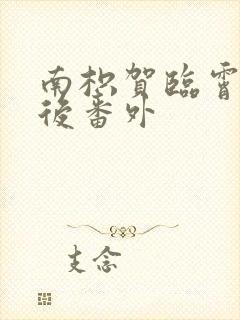 南枳賀臨霄
後番外
支念